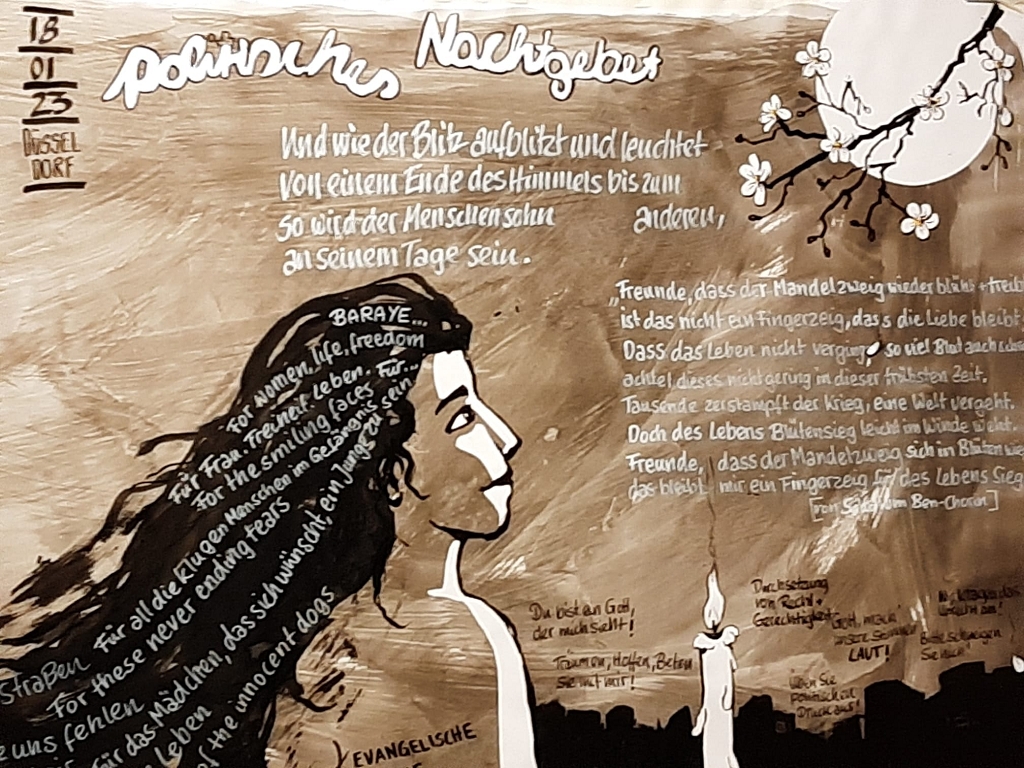 18
01
23
DÜSSEL
DORF
politisches Nachtgebet
Und wie der Blitz aufblitzt und leuchtet
von einem Ende des Himmels bis zum
anderen,
so wird der Menschensohn
an seinem Tage sein.
„Freunde, dass der Mandelzweig wieder blüht + treibt
ist das nicht ein Fingerzeig, dass die Liebe bleibt
Dass das Leben nicht verging, so viel Blut auch
achtet dieses nicht gering in dieser trübsten Zeit.
Tausende zerstampft der Krieg, eine Welt vergeht.
Doch des Lebens Blütensieg leicht im Winde weht.
Freunde, dass der Mandelzweig sich in Blüten
das bleibt mir ein Fingerzeig für des Lebens Sieg
[von Schalom Ben-Chorin]
BARAYE...
For women, life, freedom
Für Frau. Freiheit. Leben. Für...
For the smiling faces
Für all die klugen Menschen im Gefängnis
For these never ending tears
für das Mädchen, das sich wünscht, ein Junge zu sein
of the innocent dogs
Straßen
uns fehlen
Leben
Du bist ein Gott,
der mich sieht!
Träumen, Hoffen, Beten
Sie mit mir!
Durchsetzung
von Recht +
Gerechtigkeit
Gott, mach'
unsere Stimme
LAUT!
Bitte schweigen
Sie nicht!
Üben Sie
politischen
Druck aus!
EVANGELISCHE